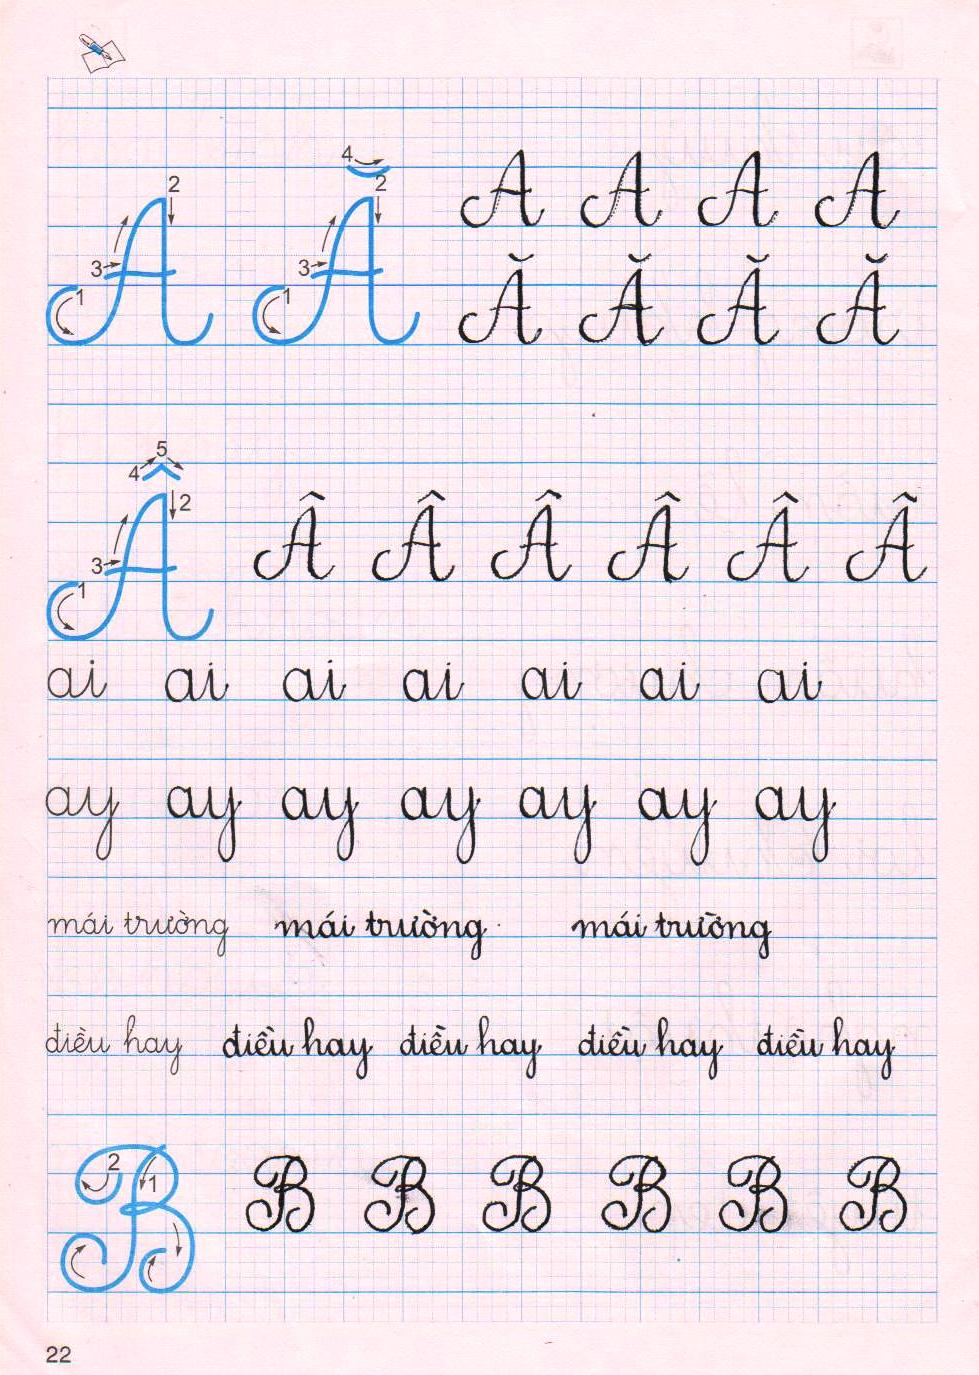 A Ă A A A A
Ă Ă Ă Ă
Â Â Â Â Â Â Â
ai ai ai ai ai ai ai
ay ay ay ay ay ay ay
mái trường mái trường mái trường
điều hay điều hay điều hay điều hay điều hay
B B B B B B B
22